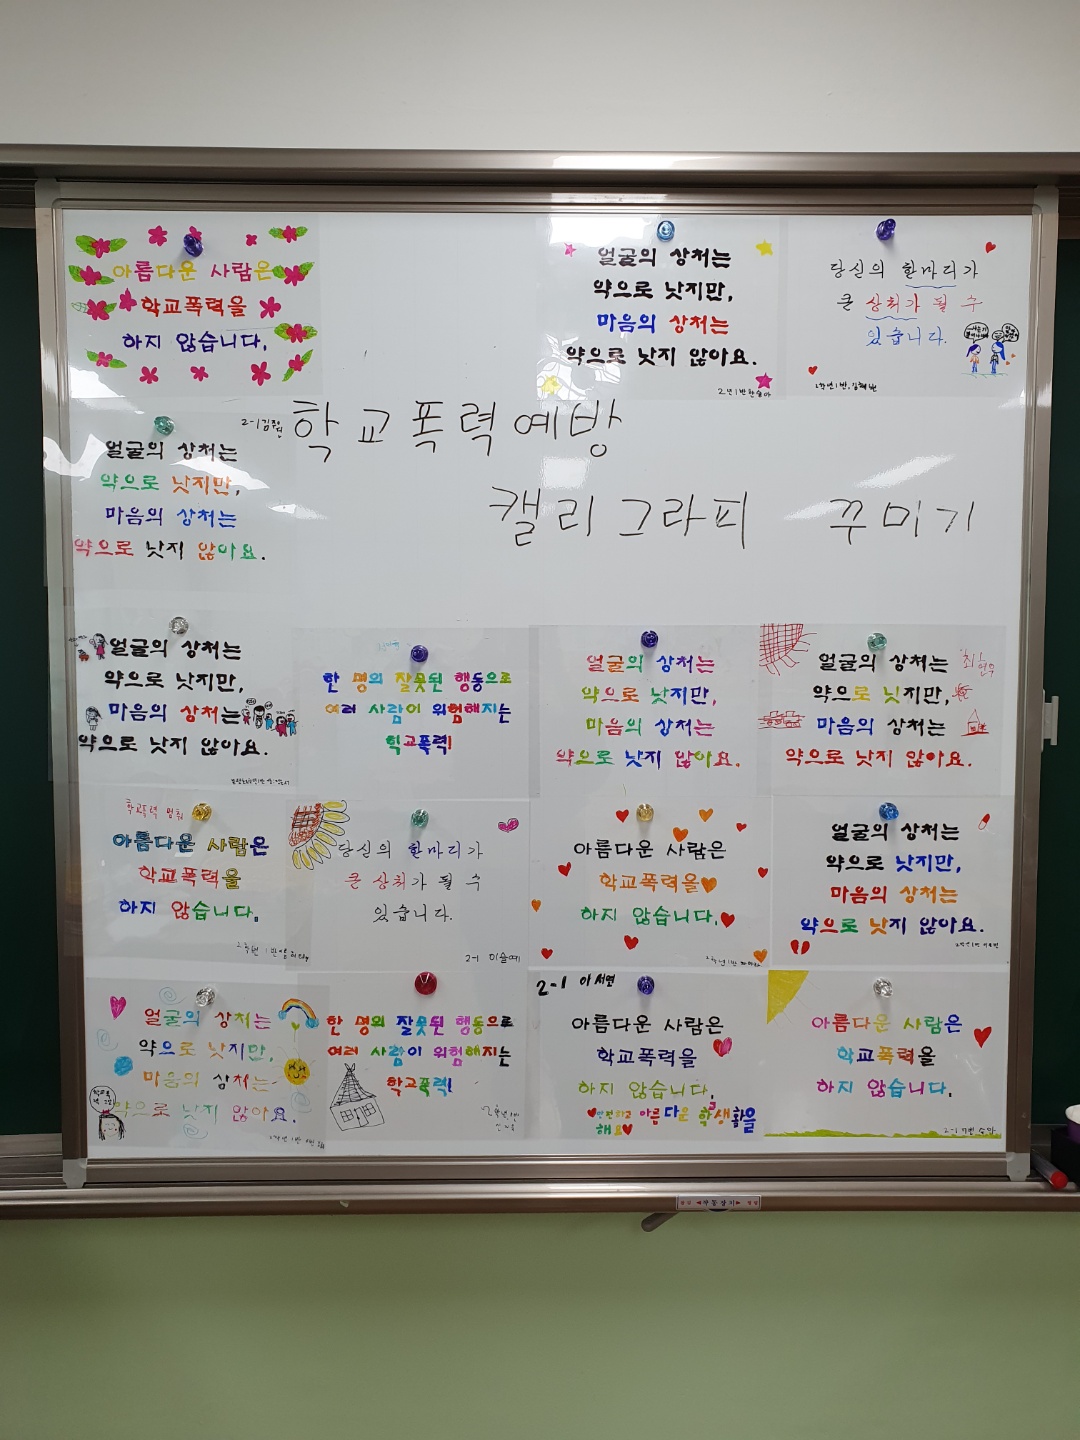 아름다운 사람은
학교폭력을
하지 않습니다.
얼굴의 상처는
약으로 낫지만,
마음의 상처는
약으로 낫지 않아요.
당신의 한마디가
큰 상처가 될 수
있습니다.
2-1
학교폭력예방
캘리그라피 꾸미기
얼굴의 상처는
약으로 낫지만,
마음의 상처는
약으로 낫지 않아요.
얼굴의 상처는
약으로 낫지만,
마음의 상처는
약으로 낫지 않아요.
한 명의 잘못된 행동으로
여러 사람이 위험해지는
학교폭력!
얼굴의 상처는
약으로 낫지만,
마음의 상처는
약으로 낫지 않아요.
얼굴의 상처는
약으로 낫지만,
마음의 상처는
약으로 낫지 않아요.
학교폭력 멈춰
아름다운 사람은
학교폭력을
하지 않습니다.
당신의 한마디가
큰 상처가 될 수
있습니다.
2-1 이슬예
아름다운 사람은
학교폭력을
하지 않습니다.
얼굴의 상처는
약으로 낫지만,
마음의 상처는
약으로 낫지 않아요.
얼굴의 상처는
약으로 낫지만,
마음의 상처는
약으로 낫지 않아요.
한 명의 잘못된 행동으로
여러 사람이 위험해지는
학교폭력!
2-1 이서연
아름다운 사람은
학교폭력을
하지 않습니다.
아름다운 학생활을
해요
아름다운 사람은
학교폭력을
하지 않습니다.